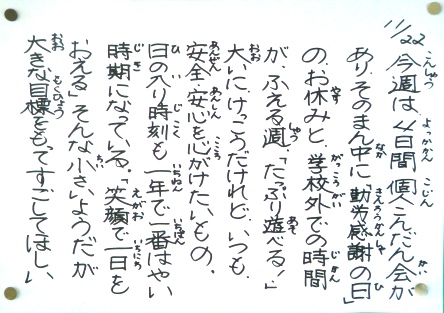 11/22
今週は、4日間個人こんだん会が
あり、そのまん中に「勤労感謝の日」
の、お休みと、学校外での時間
が、ふえる週。「たっぷり遊べる！」
大いにけっこうだけれど、いつも
安全・安心を心がけたいもの。
日の入り時刻も一年で一番はやい
時期になっている。「笑顔で一日を
おえる」そんな小さいようだが
大きな目標をもってすごしてほしい